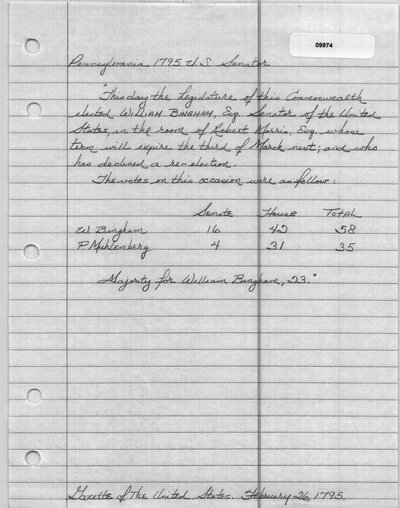 09974
Pennsylvania 1795 U.S. Senator
"This day the legislature of this Commonwealth
elected WILLIAM BINGHAM, Esq. Senator of the United
States, in the room of Robert Morris, Esq. whose
term will expire the third of March next; and who
has declined a re-election.
The votes on this occasion were as follow:
Senate House TOTAL
W. Bingham 16 42 58
P. Muhlenberg 4 31 35
Majority for William Bingham, 23."
Gazette of The United States. February 26, 1795.